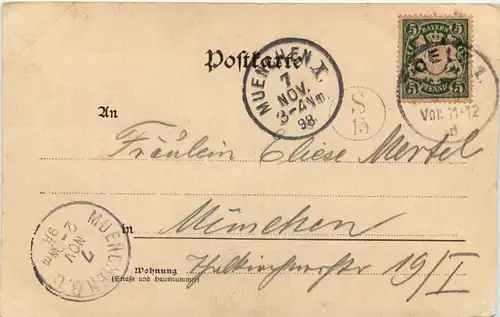 Postkarte
MUENCHEN X.
7
NOV.
3-4Nm.
98.
BAYERN
5 5
5 PFENNIG 5
1.
Vor. 11-12
S
15
An
Fräulein Eliese Mertel
in
München
MUENCHEN
7
NOV
Wohnung
19/I
(Straße und Hausnummer)